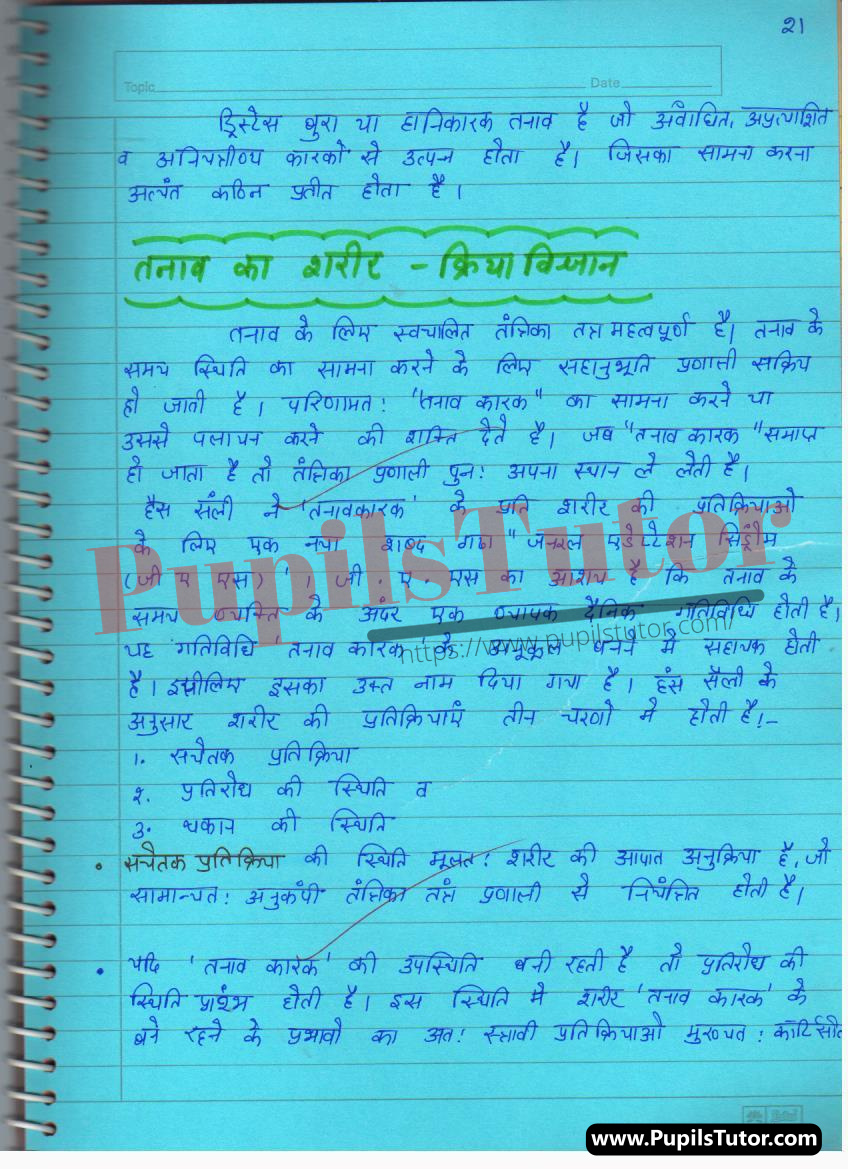 २१
Topic Date
ड्रिस्टेस बुरा या हानिकारक तनाव है जो अवांधित, अप्रत्याशित
व अनियन्त्रीण्य कारकों से उत्पन्न होता है। जिसका सामना करना
अत्यंत कठिन प्रतीत होता है।
तनाव का शरीर - क्रिया विज्ञान
तनाव के लिए स्वचालित तंत्रिका तन्त्र महत्वपूर्ण है। तनाव के
समय स्थिति का सामना करने के लिए सहानुभूति प्रणाली सक्रिय
हो जाती है। परिणामत: "तनाव कारक" का सामना करने या
उससे पलायन करने की शक्ति देते है। जब "तनाव कारक "समाप्त
हो जाता है तो तंत्रिका प्रणाली पुन: अपना स्थान ले लेती है।
हैंस सैली ने 'तनावकारक' के प्रति शरीर की प्रतिक्रियाओ
के लिए एक नया शब्द गढा "जनरल एडेप्टेशन सिंड्रोम
(जी ए एस)'। जी. ए. एस का आशय है कि तनाव के
समय व्यक्ति के अंदर एक व्यापक दैनिक गतिविधि होती है।
यह गतिविधि 'तनाव कारक' के अनुकूल बनने मे सहायक होती
है। इसीलिए इसका उक्त नाम दिया गया है। हंस सैली के
अनुसार शरीर की प्रतिक्रियाएं तीन चरणो मे होती है!-
१. सचेतक प्रतिक्रिया
२. प्रतिरोध की स्थिति व
३. थकान की स्थिति
• सचेतक प्रतिक्रिया की स्थिति मूलत: शरीर की आपात अनुक्रिया है, जो
सामान्यत: अनुकंपी तंत्रिका तंत्र प्रणाली से नियंत्रित होती है।
• यदि 'तनाव कारक' की उपस्थिति बनी रहती है तो प्रतिरोध की
स्थिति प्रारंभ होती है। इस स्थिति मे शरीर 'तनाव कारक' के
बने रहने के प्रभावो का अत: स्त्रावी प्रतिक्रियाओ मुख्यत: कॉर्टिसोल
PupilsTutor
https://www.pupilstutor.com/
www.PupilsTutor.com